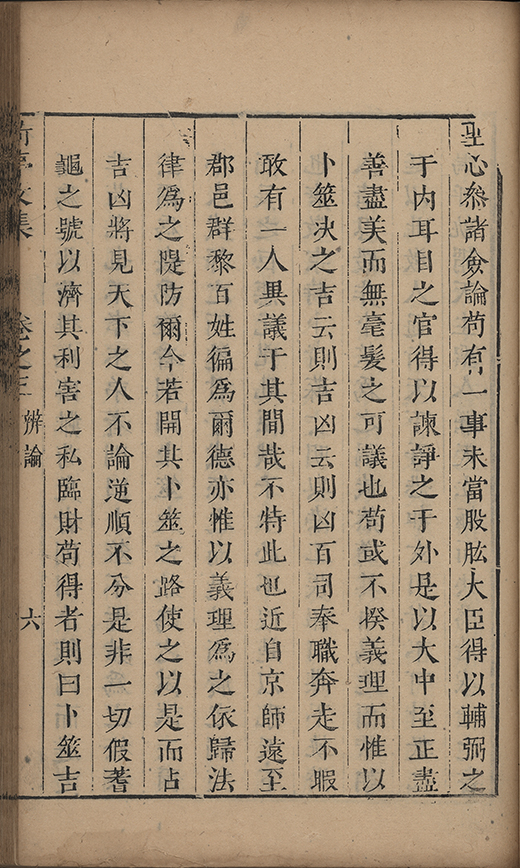 聖心叅諸僉論苟有一事未當股肱大臣得以輔弼之
于内耳目之官得以諫諍之于外是以大中至正盡
善盡美而無毫髮之可議也苟或不揆義理而惟以
卜筮决之吉云則吉凶云則凶百司奉職奔走不暇
敢有一人異議于其間哉不特此也近自京師遠至
郡邑群黎百姓徧爲爾德亦惟以義理爲之依歸法
律爲之隄防爾今若開其卜筮之路使之以是而占
吉凶將見天下之人不論逆順不分是非一切假蓍
龜之號以濟其利害之私臨財苟得者則曰卜筮吉
文集 卷之三 辨論 六